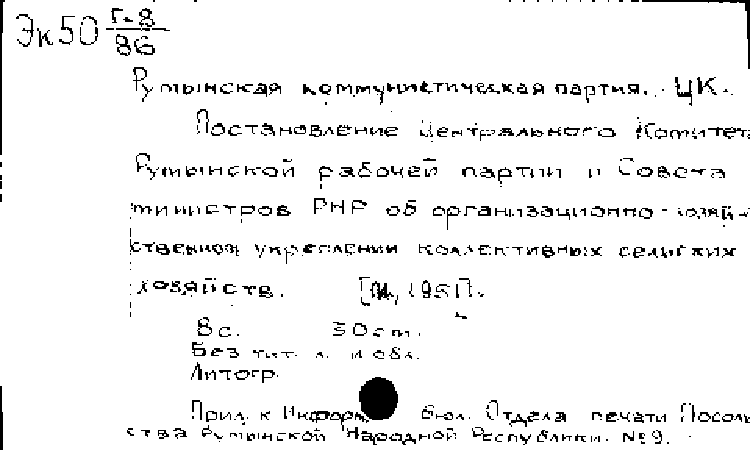 Эк50 Г-8
86
Румынская коммунистическая партия. ЦК.
Постановление Центрального Комитета
Румынской рабочей партии и Совета
министров РНР об организационно-хозяй-
ственном укреплении коллективных сельских
хозяйств. [М, 1951].
8с. 30 см.
Без тит. л. и обл.
Литогр.
Прил. к Информ. бюл. Отдела печати Посоль
ства Румынской Народной Республики. №9.